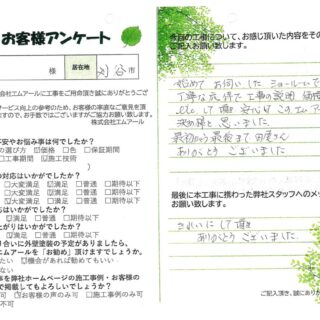 お客様アンケート
様
居住地
刈谷市
株式会社エムアールに工事をご用命頂き誠にありがとうござ
サービス向上の参考のため、お客様の率直なご意見を頂
ますので、お手数ではございますがご協力お願い致します。
株式会社エムアール
不安やお悩み事は何でしたか？
の選び方 ☑価格 □色 □保証期間
□工事期間 ☑施工技術
の対応はいかがでしたか？
□大変満足 ☑満足 □普通 □期待以下
□大変満足 ☑満足 □普通 □期待以下
□大変満足 ☑満足 □普通 □期待以下
応はいかがでしたか？
足 ☑満足 □普通 □期待以下
上がりはいかがでしたか？
足 ☑満足 □普通 □期待以下
り合いに外壁塗装の予定がありましたら、
エムアールを「お勧め」頂けますでしょうか。
たい ☑機会があれば勧めてもいい
ない
事を弊社ホームページの施工事例・お客様の
で掲載してもよろしいでしょうか？
可 ☑お客様の声のみ可 □施工事例のみ可
不可
今回の工事について、お感じ頂いた内容をその
ご記入お願い致します。
始めてお伺いしたショールームで
丁寧な応対で工事の説明
安心して
決めようと思いました。
最初から最後まで
ありがとうございました
最後に本工事に携わった弊社スタッフへのメッ
お願い致します。
きれいにして頂き
ありがとうございました
ご記入頂き、誠にありがと